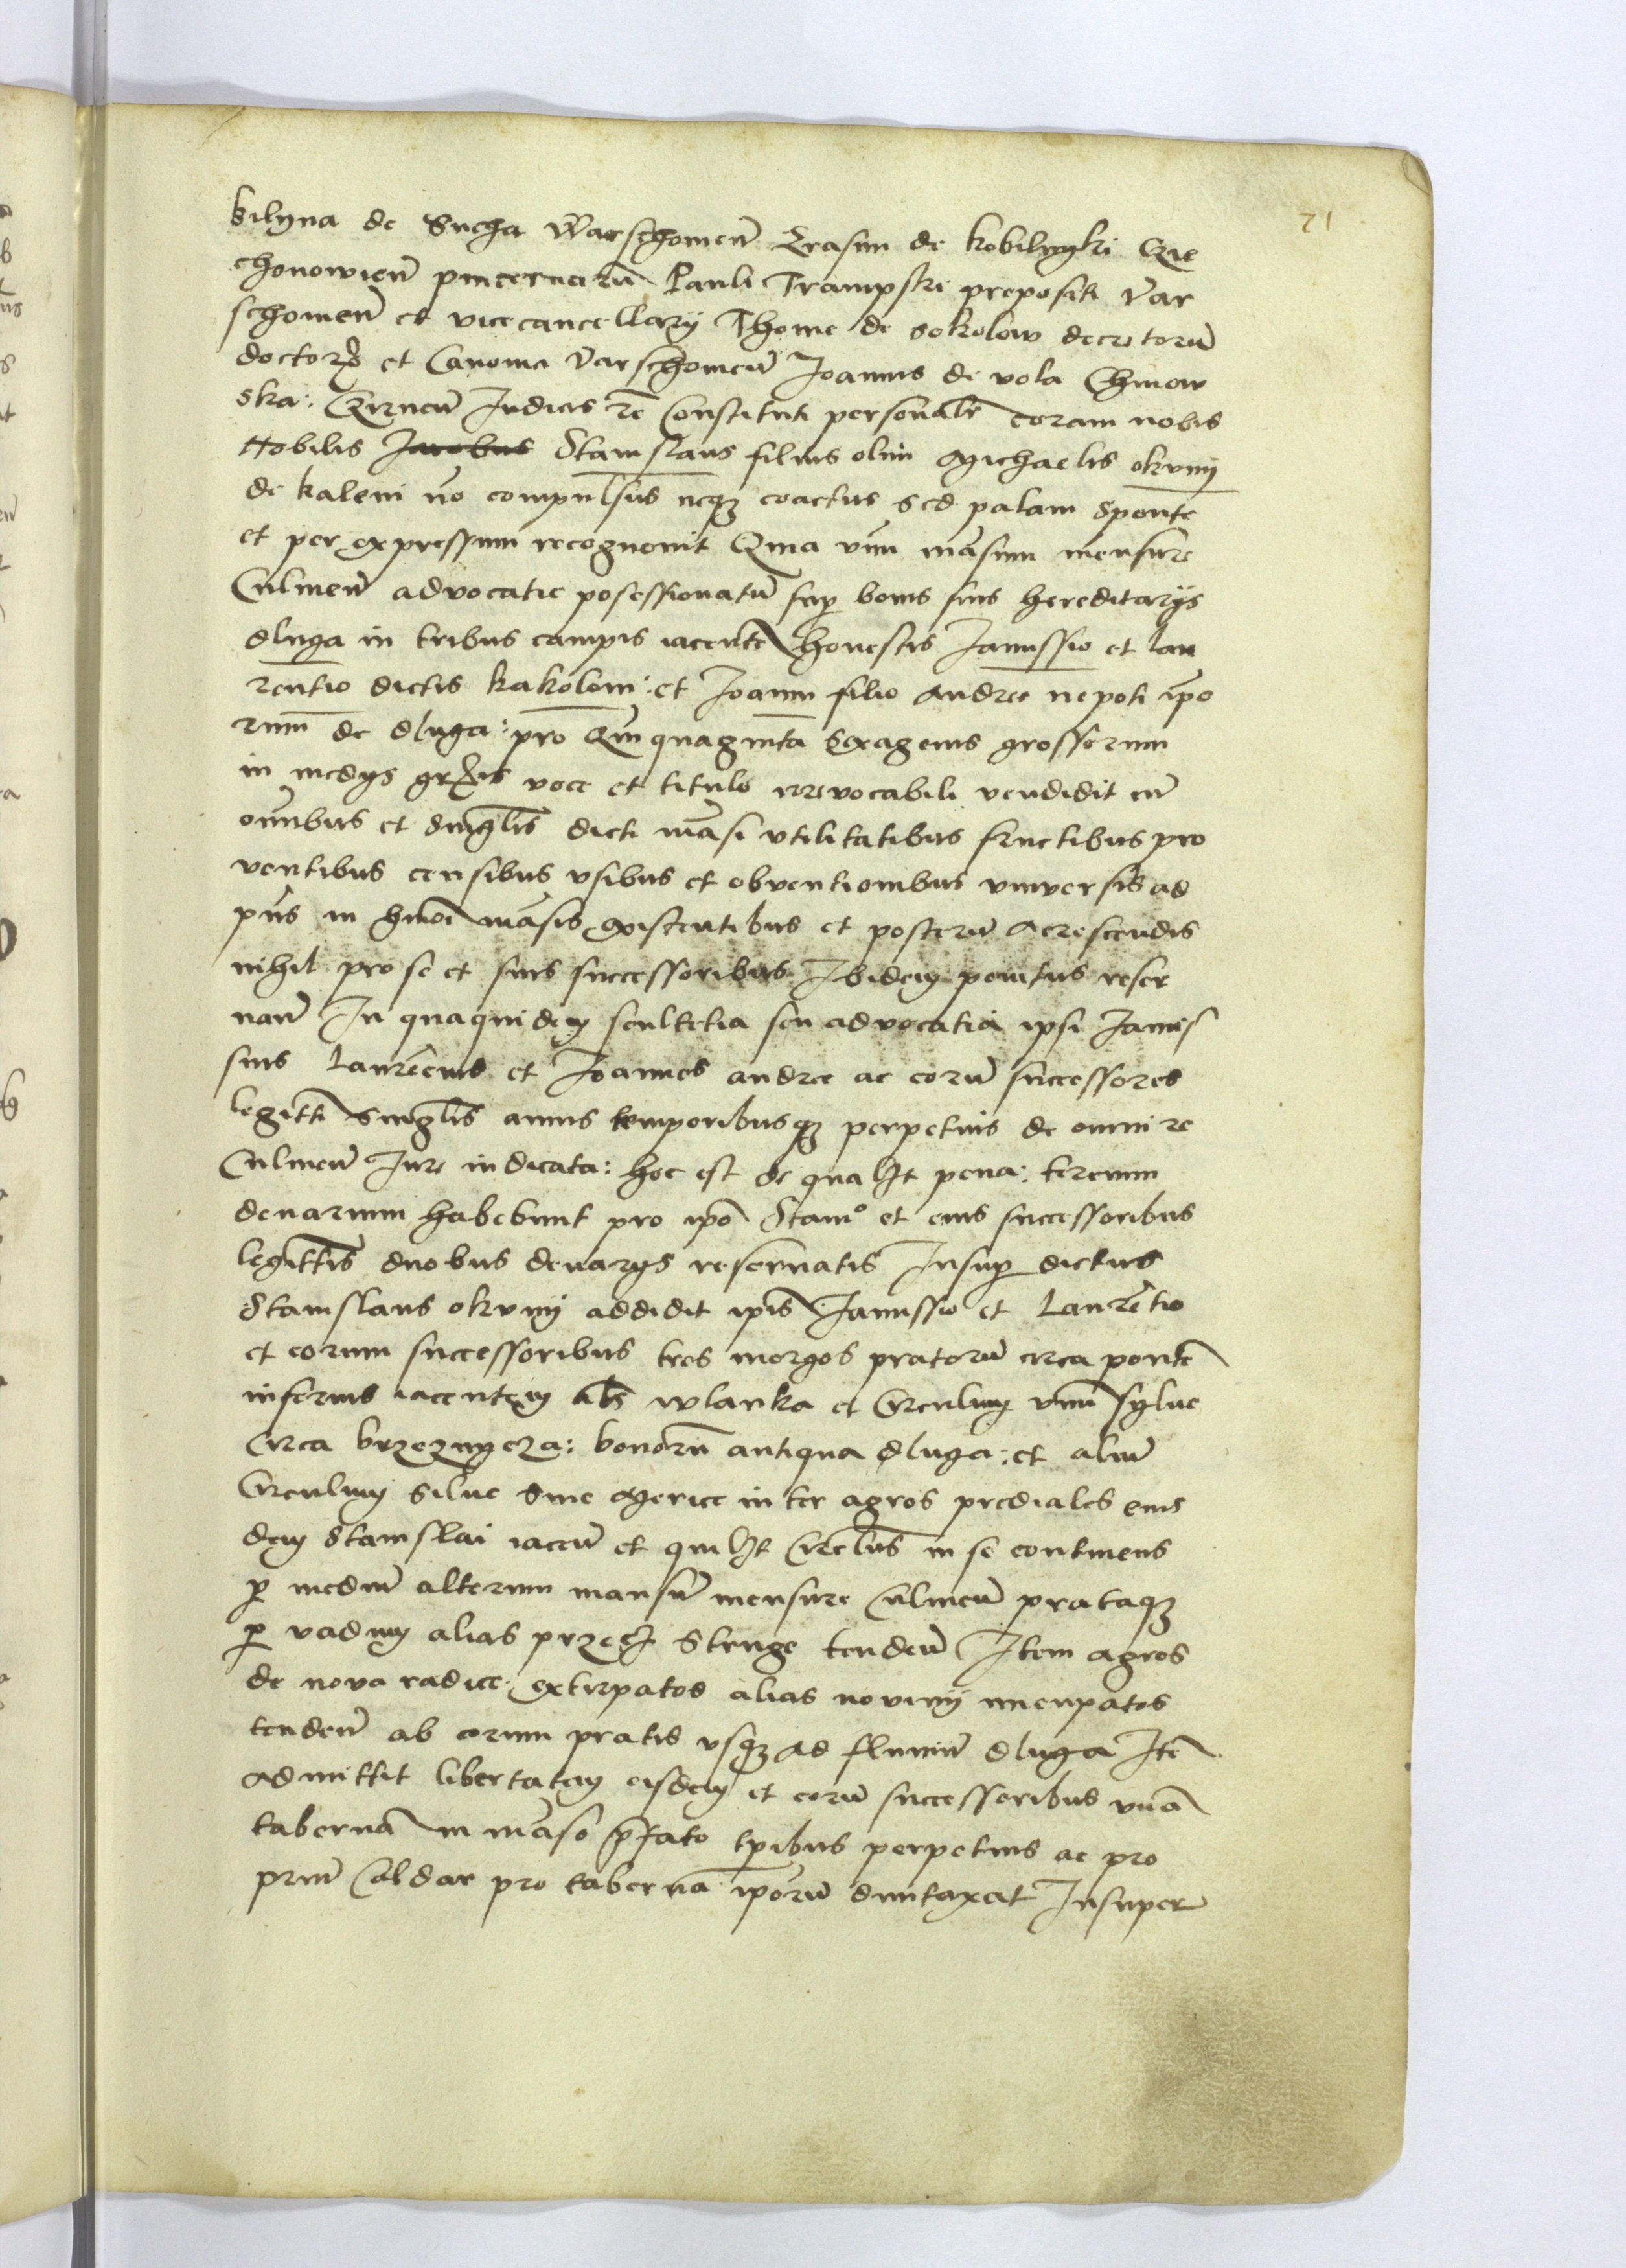 71
bilyna de Sucha Warschouien̄ Erasmi de kobilnyki Cie
chonowien̄ pincernarū Pauli Trampski prepositi Var
schouien̄ et vicecancellarÿ Thome de Sokolow decretorū
doctorꝫ et Canonici Varschouien̄ Joannis de vola Chinow
ska: Czirneñ Judicis r̄e Constituti personalr̄ coram nobis
Nobilis Jacobus Stanislaus filius olim Michaelis okvny
de kaleni nō compulsus neqꝫ coactus sed palam sponte
et per expressum recognouit Quia vnū māsum mensure
Culmen̄ advocatie posessionatū suꝑ bonis suis hereditarÿs
dluga in tribus campis iacentē honestis Janussio et lau
rentio dictis kakolom: et Joanni filio andree nepoti ip̄o
rum de dluga: pro Quinquaginta Sexagenis grossorum
in medÿs gr̄is voce et titulo irrevocabili vendidit cū
om̄ibus et singlis dicti māsi vtilitatibus fructibus pro
ventibus censibus vsibus et obventionibus vniversis ad
pn̄s in hmōi māsis existentibus et posterū acrescendis
nihil pro se et suis successoribus Ibidem penitus reser
uan̄ In quaquidem scultetia seu advocatia ipsi Janis
sius laurēcius et Joannes andree ac eorū successores
legitti singlis annis temporibusqꝫ perpetuis de omni re
Culmen̄ Jure indicata: hoc est de qualꝫt pena: tercium
denarium habebunt pro ip̄o Stan̄o et eius successoribus
legittis duobus denarÿs reseruatis Insuꝑ dictus
Stanislaus okvny addidit ip̄is Janussio et Laurētio
et eorum successoribus tres morgos pratorū circa pontē
inferius iacentem als wlanka et Circulum vnū sylue
Circa brzeznycza: bonorū antiqua dluga: et aliū
Circulum silue siue Merice inter agros prediales eius
dem Stanislai iacen̄ et quilꝫt Circlus in se continens
ꝑ mediū alterum mansū mensure Culmen̄ prataqꝫ
ꝑ vadum alias przesz Struge tenden̄ Item agros
de nova radice extirpatos alias noviny nuncupatos
tenden̄ ab eorum pratis vsqꝫ ad fluuiū dluga Itē
admittit libertatem eisdem et eorū successoribus vnā
tabernā in māso p̄fato tp̄ibus perpetuis ac pro
priū Caldar pro taberna ip̄orū duntaxat Insuper